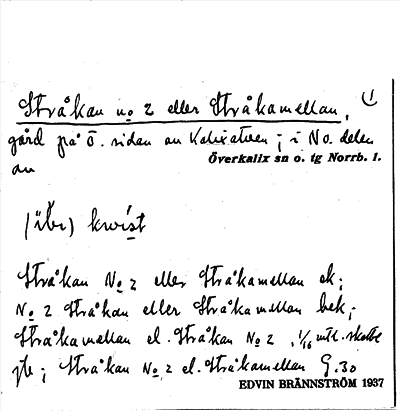 Stråkan No 2 eller Stråkamellan, 1
gård på ö. sidan av Kalixälven; i No. delen
av
Överkalix sn o. tg Norrb. l.
kwist
Stråkan No 2 eller Stråkamellan ek;
No 2 Stråkan eller Stråkamellan bek;
Stråkamellan el. Stråkan No 2, 1/16 mtl. skatte
jb; Stråkan No 2 el. Stråkamellan G.30
EDVIN BRÄNNSTRÖM 1937